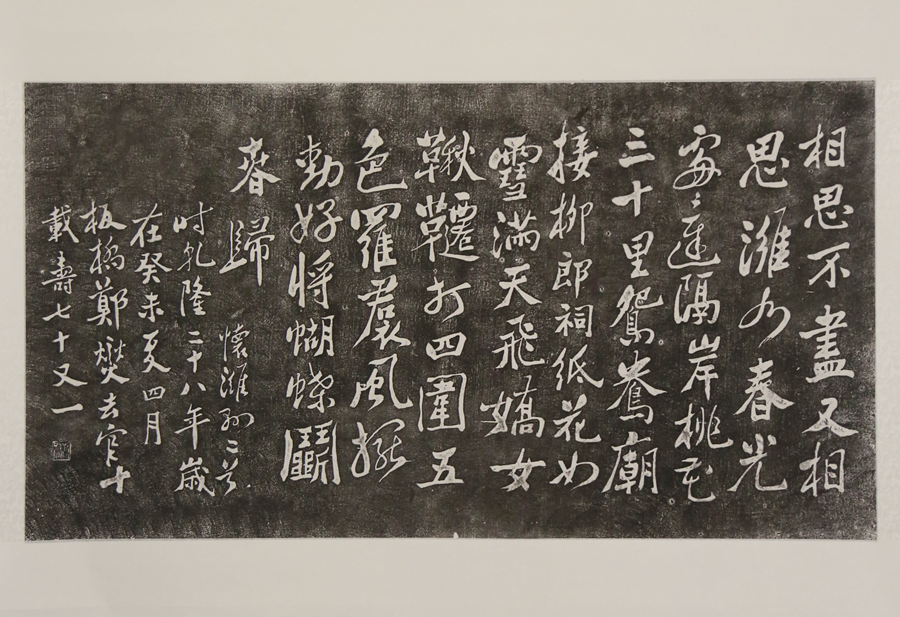 相思不盡又相
思濰水春光
處〻遲隔岸桃花
三十里鴛鴦廟
接柳郎祠紙花如
雪滿天飛嬌女
鞦韆打四圍五
色羅裠風擺
動好將蝴蝶鬭
春歸
懷濰縣二首
時乾隆二十八年歲
在癸未夏四月
板橋鄭燮去官十
載壽七十又一